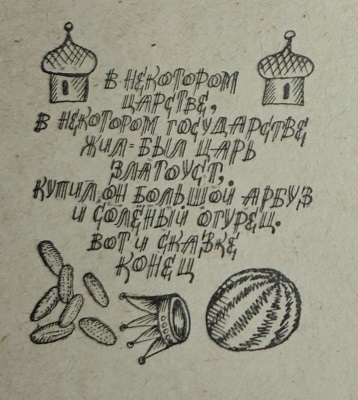 В НЕКОТОРОМ
ЦАРСТВЕ,
В НЕКОТОРОМ ГОСУДАРСТВЕ
ЖИЛ-БЫЛ ЦАРЬ
ЗЛАТОУСТ.
КУПИЛ ОН БОЛЬШОЙ АРБУЗ
И СОЛЁНЫЙ ОГУРЕЦ.
ВОТ И СКАЗКЕ
КОНЕЦ